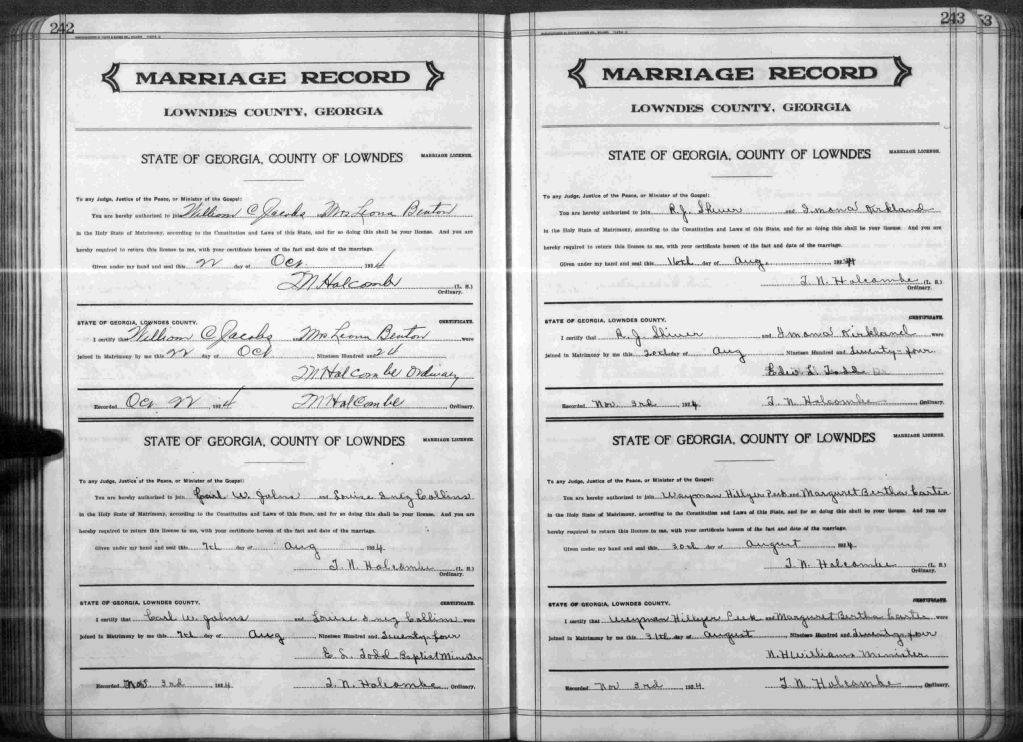 242
MARRIAGE RECORD
LOWNDES COUNTY, GEORGIA
STATE OF GEORGIA, COUNTY OF LOWNDES MARRIAGE LICENSE.
To any Judge, Justice of the Peace, or Minister of the Gospel:
You are hereby authorized to join William C Jacobs and Mrs Leona Benton
in the Holy State of Matrimony, according to the Constitution and Laws of this State, and for so doing this shall be your license. And you are
hereby required to return this license to me, with your certificate hereon of the fact and date of the marriage.
Given under my hand and seal this 22 day of Oct 1924
T N Holcombe (L. S.)
Ordinary.
STATE OF GEORGIA, LOWNDES COUNTY. CERTIFICATE.
I certify that William C Jacobs and Mrs Leona Benton were
joined in Matrimony by me this 22 day of Oct Nineteen Hundred and 24
T N Holcombe Ordinary
Recorded Oct 22 1924 T N Holcombe, Ordinary.
STATE OF GEORGIA, COUNTY OF LOWNDES MARRIAGE LICENSE.
To any Judge, Justice of the Peace, or Minister of the Gospel:
You are hereby authorized to join Carl W. Johns and Louise Inez Collins
in the Holy State of Matrimony, according to the Constitution and Laws of this State, and for so doing this shall be your license. And you are
hereby required to return this license to me, with your certificate hereon of the fact and date of the marriage.
Given under my hand and seal this 7th day of Aug 1924
T. N. Holcombe (L. S.)
Ordinary.
STATE OF GEORGIA, LOWNDES COUNTY. CERTIFICATE.
I certify that Carl W. Johns and Louise Inez Collins were
joined in Matrimony by me this 7th day of Aug Nineteen Hundred and Twenty-four
E. L. Todd Baptist Minister
Recorded Nov 3rd 1924 T. N. Holcombe, Ordinary.
243
53
MARRIAGE RECORD
LOWNDES COUNTY, GEORGIA
STATE OF GEORGIA, COUNTY OF LOWNDES MARRIAGE LICENSE.
To any Judge, Justice of the Peace, or Minister of the Gospel:
You are hereby authorized to join R. J. Shiver and Imona Kirkland
in the Holy State of Matrimony, according to the Constitution and Laws of this State, and for so doing this shall be your license. And you are
hereby required to return this license to me, with your certificate hereon of the fact and date of the marriage.
Given under my hand and seal this 16th day of Aug. 1924
T. N. Holcombe (L. S.)
Ordinary.
STATE OF GEORGIA, LOWNDES COUNTY. CERTIFICATE.
I certify that R. J. Shiver and Imona Kirkland were
joined in Matrimony by me this day of Aug, Nineteen Hundred and Twenty-four
L. Todd
Recorded Nov. 3rd 1924 T. N. Holcombe, Ordinary.
STATE OF GEORGIA, COUNTY OF LOWNDES MARRIAGE LICENSE.
To any Judge, Justice of the Peace, or Minister of the Gospel:
You are hereby authorized to join Wayman Hillyer Peek and Margaret Bertha Carter
in the Holy State of Matrimony, according to the Constitution and Laws of this State, and for so doing this shall be your license. And you are
hereby required to return this license to me, with your certificate hereon of the fact and date of the marriage.
Given under my hand and seal this 30th day of August 1924
T. N. Holcombe (L. S.)
Ordinary.
STATE OF GEORGIA, LOWNDES COUNTY. CERTIFICATE.
I certify that Wayman Hillyer Peek and Margaret Bertha Carter were
joined in Matrimony by me this 31th day of August, Nineteen Hundred and Twenty-four
N. H Williams Minister
Recorded Nov 3rd 1924 T. N. Holcombe, Ordinary.